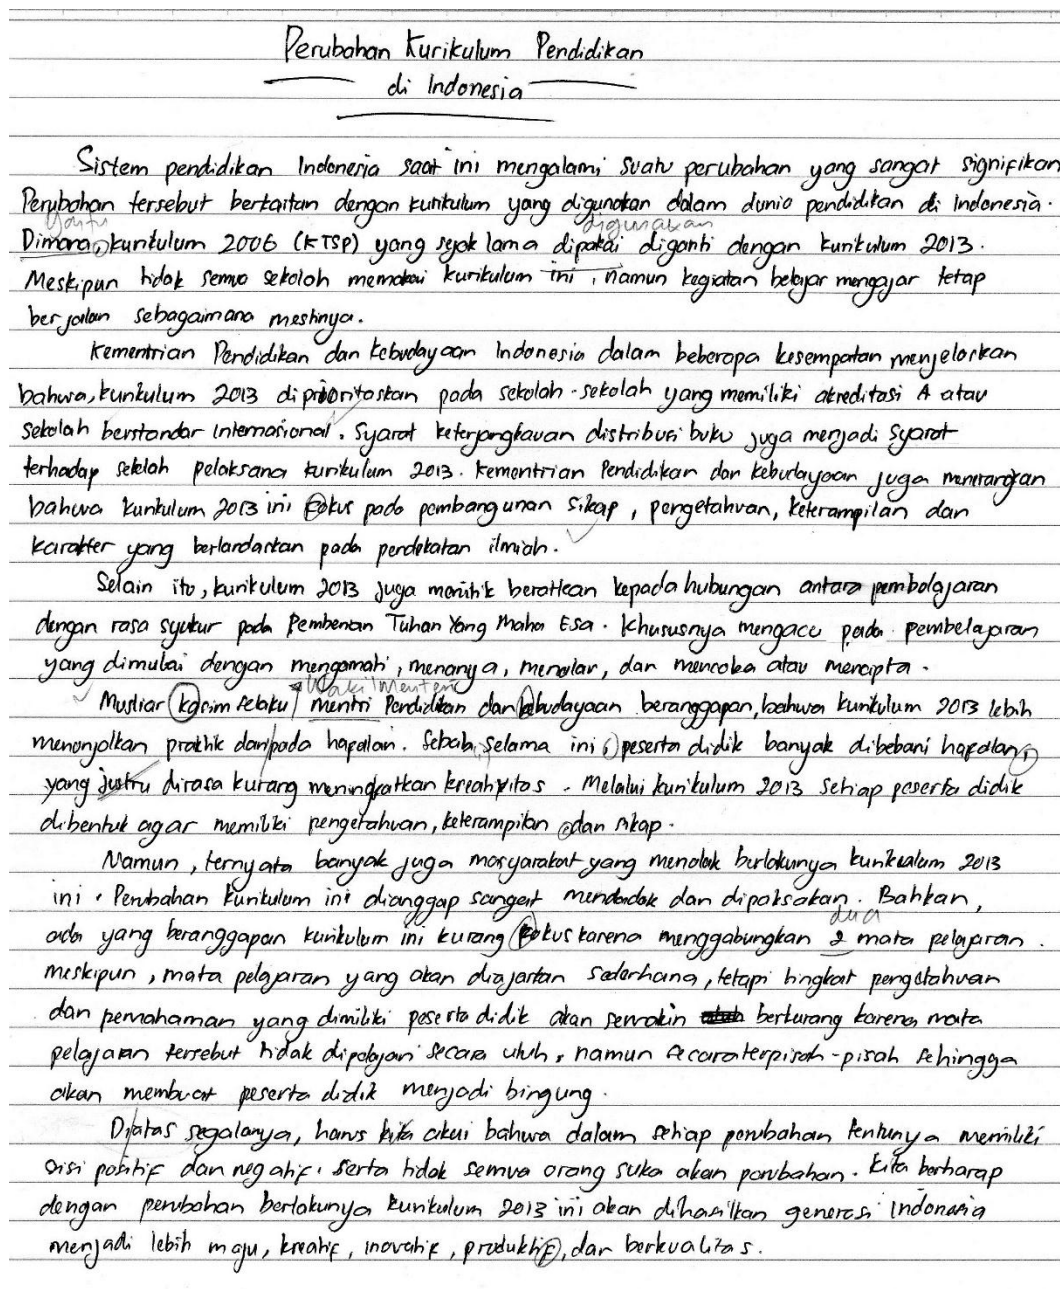 Perubahan Kurikulum Pendidikan
di Indonesia
Sistem pendidikan Indonesia saat ini mengalami suatu perubahan yang sangat signifikan
Perubahan tersebut berkaitan dengan kurikulum yang digunakan dalam dunia pendidikan di Indonesia.
yaitu digunakan
Dimana, kurikulum 2006 (KTSP) yang sejak lama dipakai diganti dengan kurikulum 2013.
Meskipun tidak semua sekolah memakai kurikulum ini, namun kegiatan belajar mengajar tetap
berjalan sebagaimana mestinya.
Kementrian Pendidikan dan Kebudayaan Indonesia dalam beberapa kesempatan menjelaskan
bahwa, kurikulum 2013 diprioritaskan pada sekolah-sekolah yang memiliki akreditasi A atau
sekolah berstandar internasional. Syarat keterjangkauan distribusi buku juga menjadi syarat
terhadap sekolah pelaksana kurikulum 2013. Kementrian Pendidikan dan Kebudayaan juga menerangkan
bahwa kurikulum 2013 ini fokus pada pembangunan sikap, pengetahuan, keterampilan dan
karakter yang berlandaskan pada pendekatan ilmiah.
Selain itu, kurikulum 2013 juga menitik beratkan kepada hubungan antara pembelajaran
dengan rasa syukur pada Pemberian Tuhan Yang Maha Esa. Khususnya mengacu pada pembelajaran
yang dimulai dengan mengamati, menanya, menalar, dan mencoba atau mencipta.
Wakil Menteri
Musliar kasim selaku mentri Pendidikan dan kebudayaan beranggapan, bahwa kurikulum 2013 lebih
menonjolkan praktik daripada hafalan. Sebab, selama ini, peserta didik banyak dibebani hafalan,
yang justru dirasa kurang meningkatkan kreatifitas. Melalui kurikulum 2013 setiap peserta didik
dibentuk agar memiliki pengetahuan, keterampilan, dan sikap.
Namun, ternyata banyak juga masyarakat yang menolak berlakunya kurikulum 2013
ini. Perubahan kurikulum ini dianggap sangat mendadak dan dipaksakan. Bahkan,
dua
ada yang beranggapan kurikulum ini kurang fokus karena menggabungkan 2 mata pelajaran.
meskipun, mata pelajaran yang akan diajarkan sederhana, tetapi tingkat pengetahuan
dan pemahaman yang dimiliki peserta didik akan semakin berkurang karena mata
pelajaran tersebut tidak dipelajari secara utuh, namun secara terpisah-pisah sehingga
akan membuat peserta didik menjadi bingung.
Diatas segalanya, harus kita akui bahwa dalam setiap perubahan tentunya memiliki
sisi positif dan negatif, serta tidak semua orang suka akan perubahan. Kita berharap
dengan perubahan berlakunya kurikulum 2013 ini akan dihasilkan generasi indonesia
menjadi lebih maju, kreatif, inovatif, produktif, dan berkualitas.